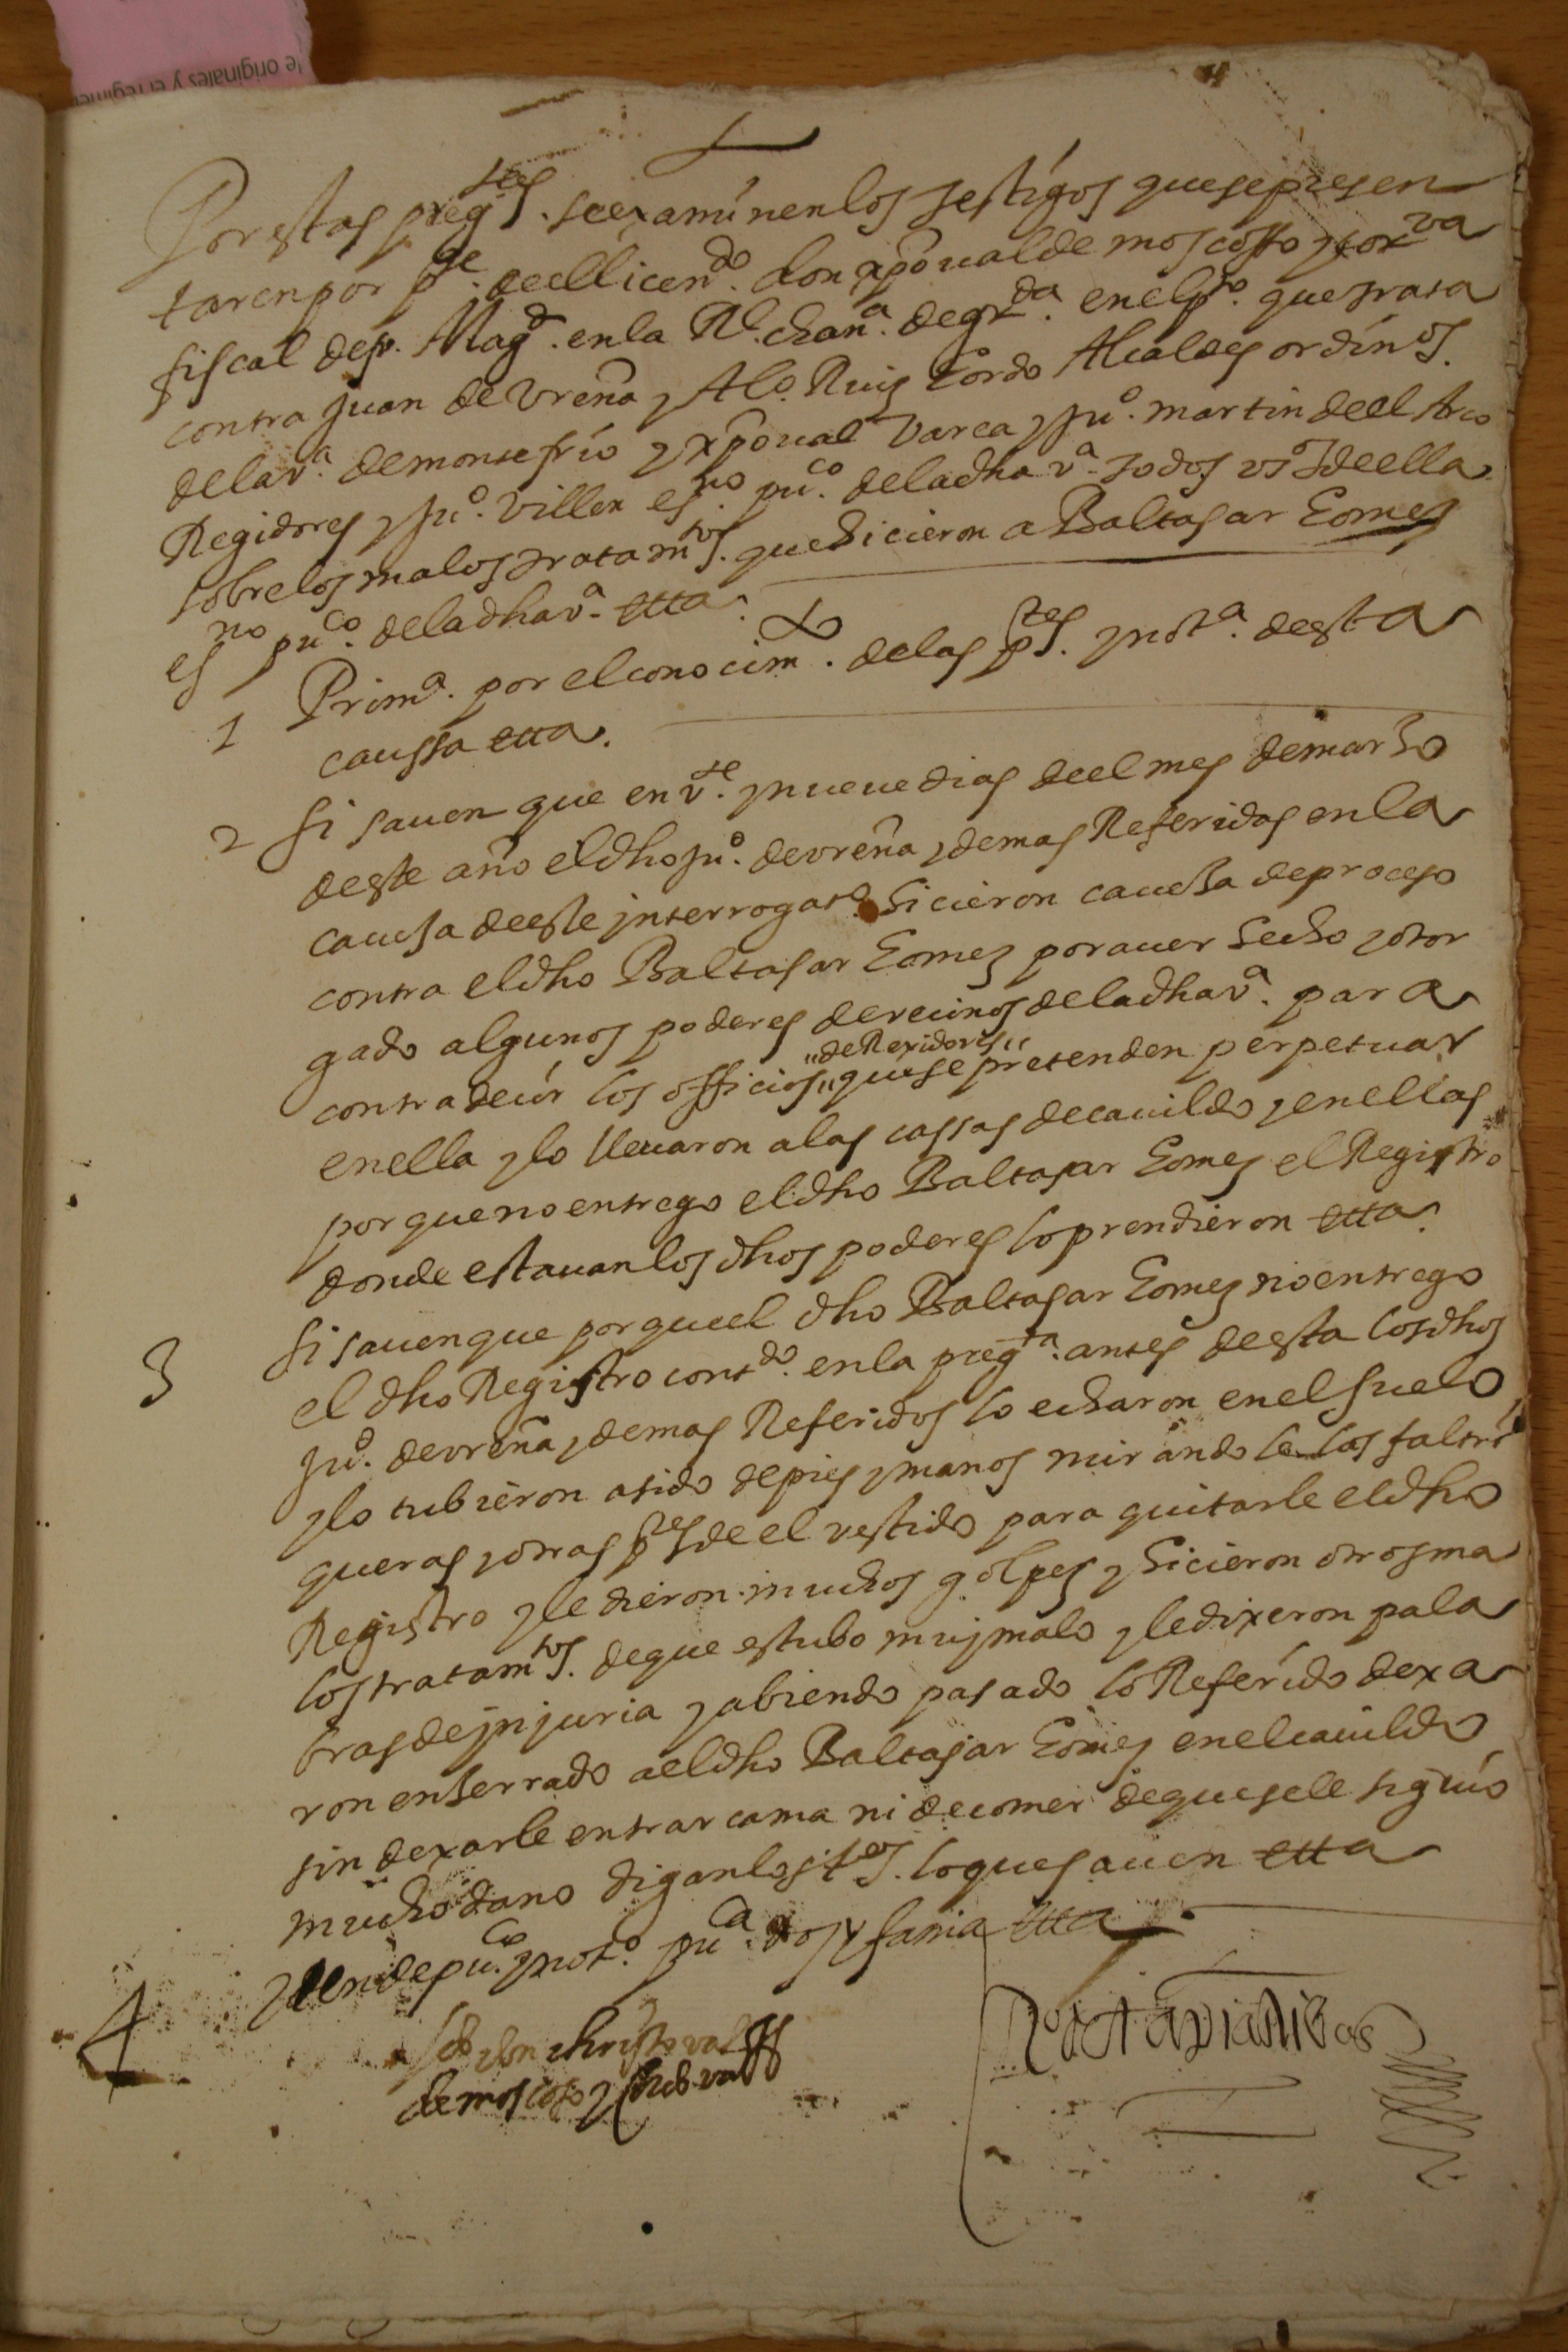 le originales y el régimen
Por estas preg.tas se examinen los testigos que se presen
taren por p.te de el licen.do don xpoual de moscosso y cor.va
fiscal de su Mag.d en la R.l chan.a de gr.da en el p.to que trata
contra Juan de Vreña y Al.o Ruiz Gordo Alcaldes ordin.os
de la v.a de montefrio y xpoual Varea y Ju.o martin de el Arco
Regidores y Ju.o Villen es.no pu.co de la dha v.a todos v.os de ella
sobre los malos tratam.tos que hicieron a Baltasar Gomez
es.no pu.co de la dha v.a etta
1 Prim.a por el conocim.o de las p.tes y not.a de esta
caussa etta.
2 Si sauen que en v.te y nueue dias de el mes de marzo
de este año el dho Ju.o de vreña y demas Referidos en la
caueza de este interrogat.o hicieron caueza de proceso
contra el dho Baltasar Gomez por auer hecho y otor
gado algunos poderes de vecinos de la dha v.a para
"de Rexidores"
contradecir los officios " que se pretenden perpetuar
en ella y lo lleuaron a las cassas de cauildo y en ellas
por que no entrego el dho Baltasar Gomez el Registro
donde estauan los dhos poderes lo prendieron etta.
3 Si sauen que por que el dho Baltasar Gomez no entrego
el dho Registro cont.do en la preg.ta antes de esta los dhos
Ju.o de vreña y demas Referidos lo echaron en el suelo
y lo tubieron asido de pies y manos mirandole las faltri
queras y otras p.tes de el vestido para quitarle el dho
Registro y le dieron muchos golpes y hicieron otros ma
los tratam.tos de que estubo muj malo y le dixeron pala
bras de injuria y abiendo pasado lo Referido dexa
ron enserrado a el dho Baltasar Gomez en el cauildo
sin dexarle entrar cama ni de comer de que se le siguio
mucho daño digan los t.os lo que sauen etta
4 Yten de pu.co y not.o pu.ca voz y fama etta
don christoval
de moscoso y